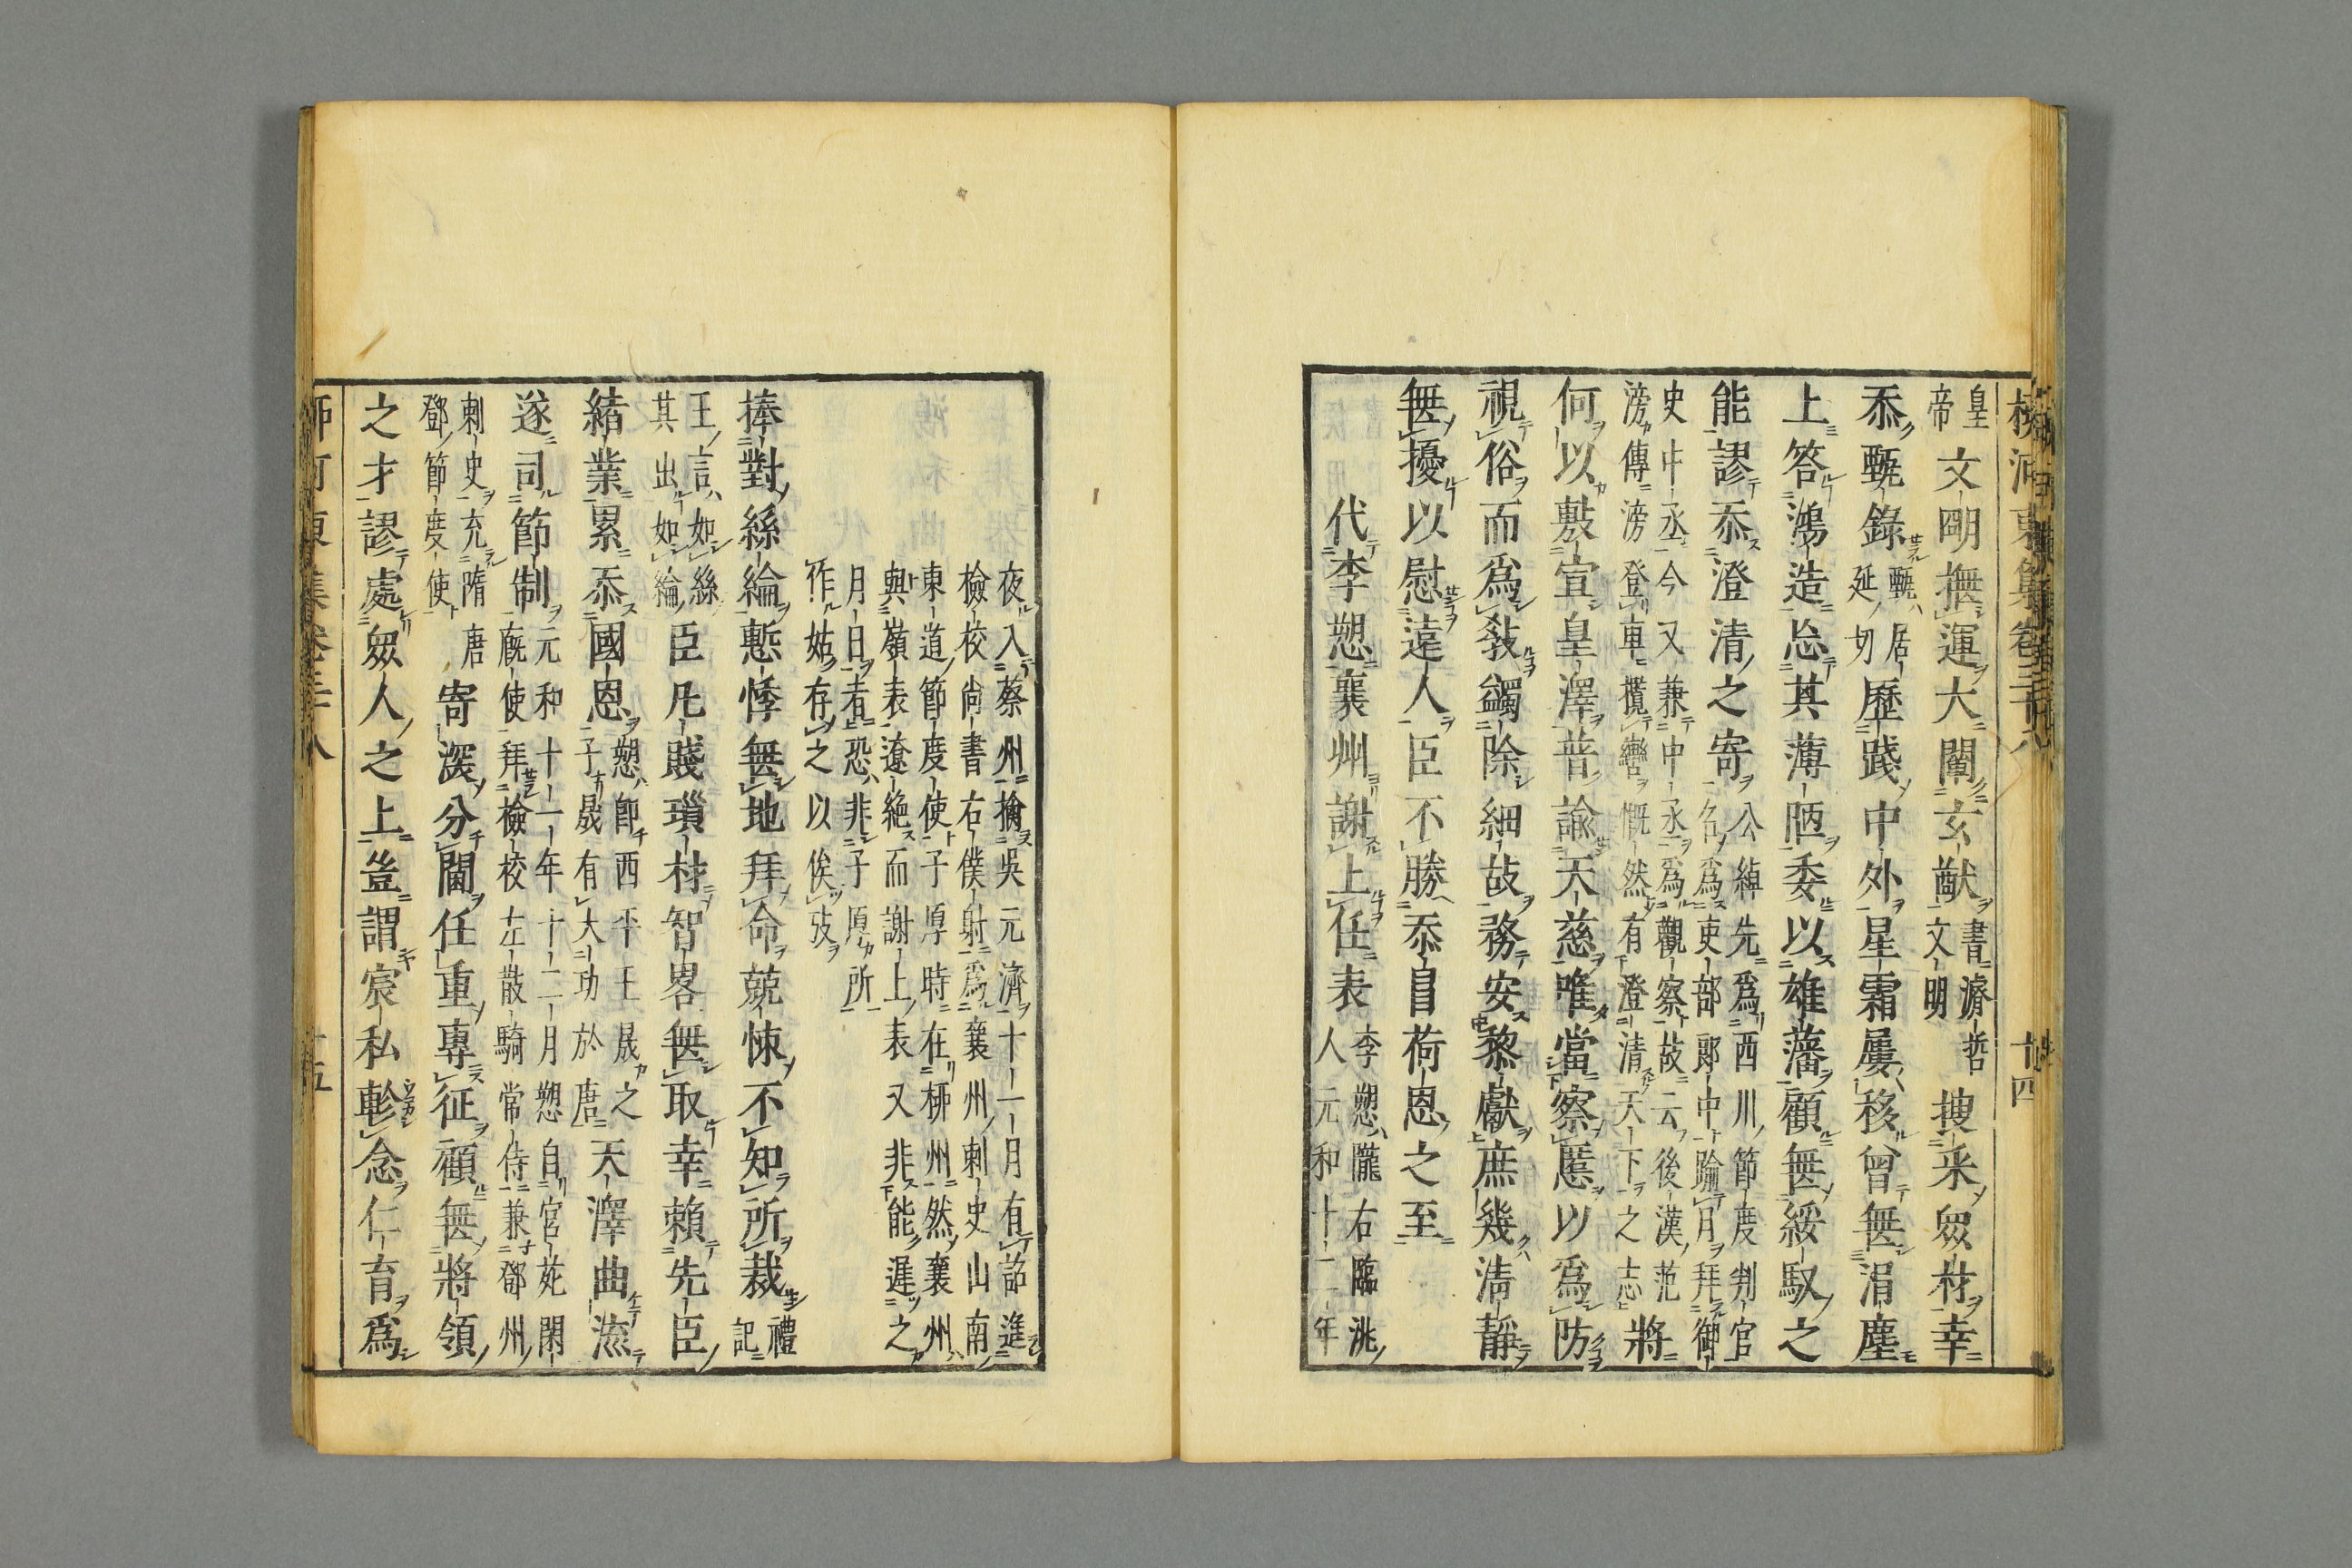 柳河東集卷三十八 十四
皇帝文明撫運大闡玄猷書濬哲文明搜采衆材幸
忝甄錄甄居延切歷踐中外星霜屢移曾無涓塵
上答鴻造忘其薄陋委以雄藩顧無綏馭之
能謬忝澄清之寄公綽先爲西川節度判官名爲吏部郎中踰月拜御
史中丞今又兼中丞爲觀察故云後漢范滂傳滂登車攬轡慨然有澄清天下之志將
何以敷宣皇澤普諭天慈唯當察慝以爲防
視俗而爲敎蠲除細故務安黎獻庶幾淸靜
無擾以慰遠人臣不勝忝自荷恩之至
代李愬襄州謝上任表李愬隴右臨洮人元和十一年
夜入蔡州擒吳元濟十一月有詔進
檢校尚書右僕射爲襄州刺史山南
東道節度使子厚時在柳州然襄州
與嶺表遼絕而謝上表又非能遲之
月日者恐非子厚所
作姑存之以俟攷
捧對絲綸慙悸無地拜命兢悚不知所裁禮記
王言如絲其出如綸臣凡賤瑣材智畧無取幸賴先臣
緒業累忝國恩愬卽西平王晟之子晟有大功於唐天澤曲流
遂司節制元和十一年十二月愬自宮苑閑廐使拜檢校左散騎常侍兼鄧州
刺史充隋唐鄧節度使寄深分閫任重專征顧無將領
之才謬處衆人之上豈謂宸私軫念仁育爲
柳河東集卷三十八 十五